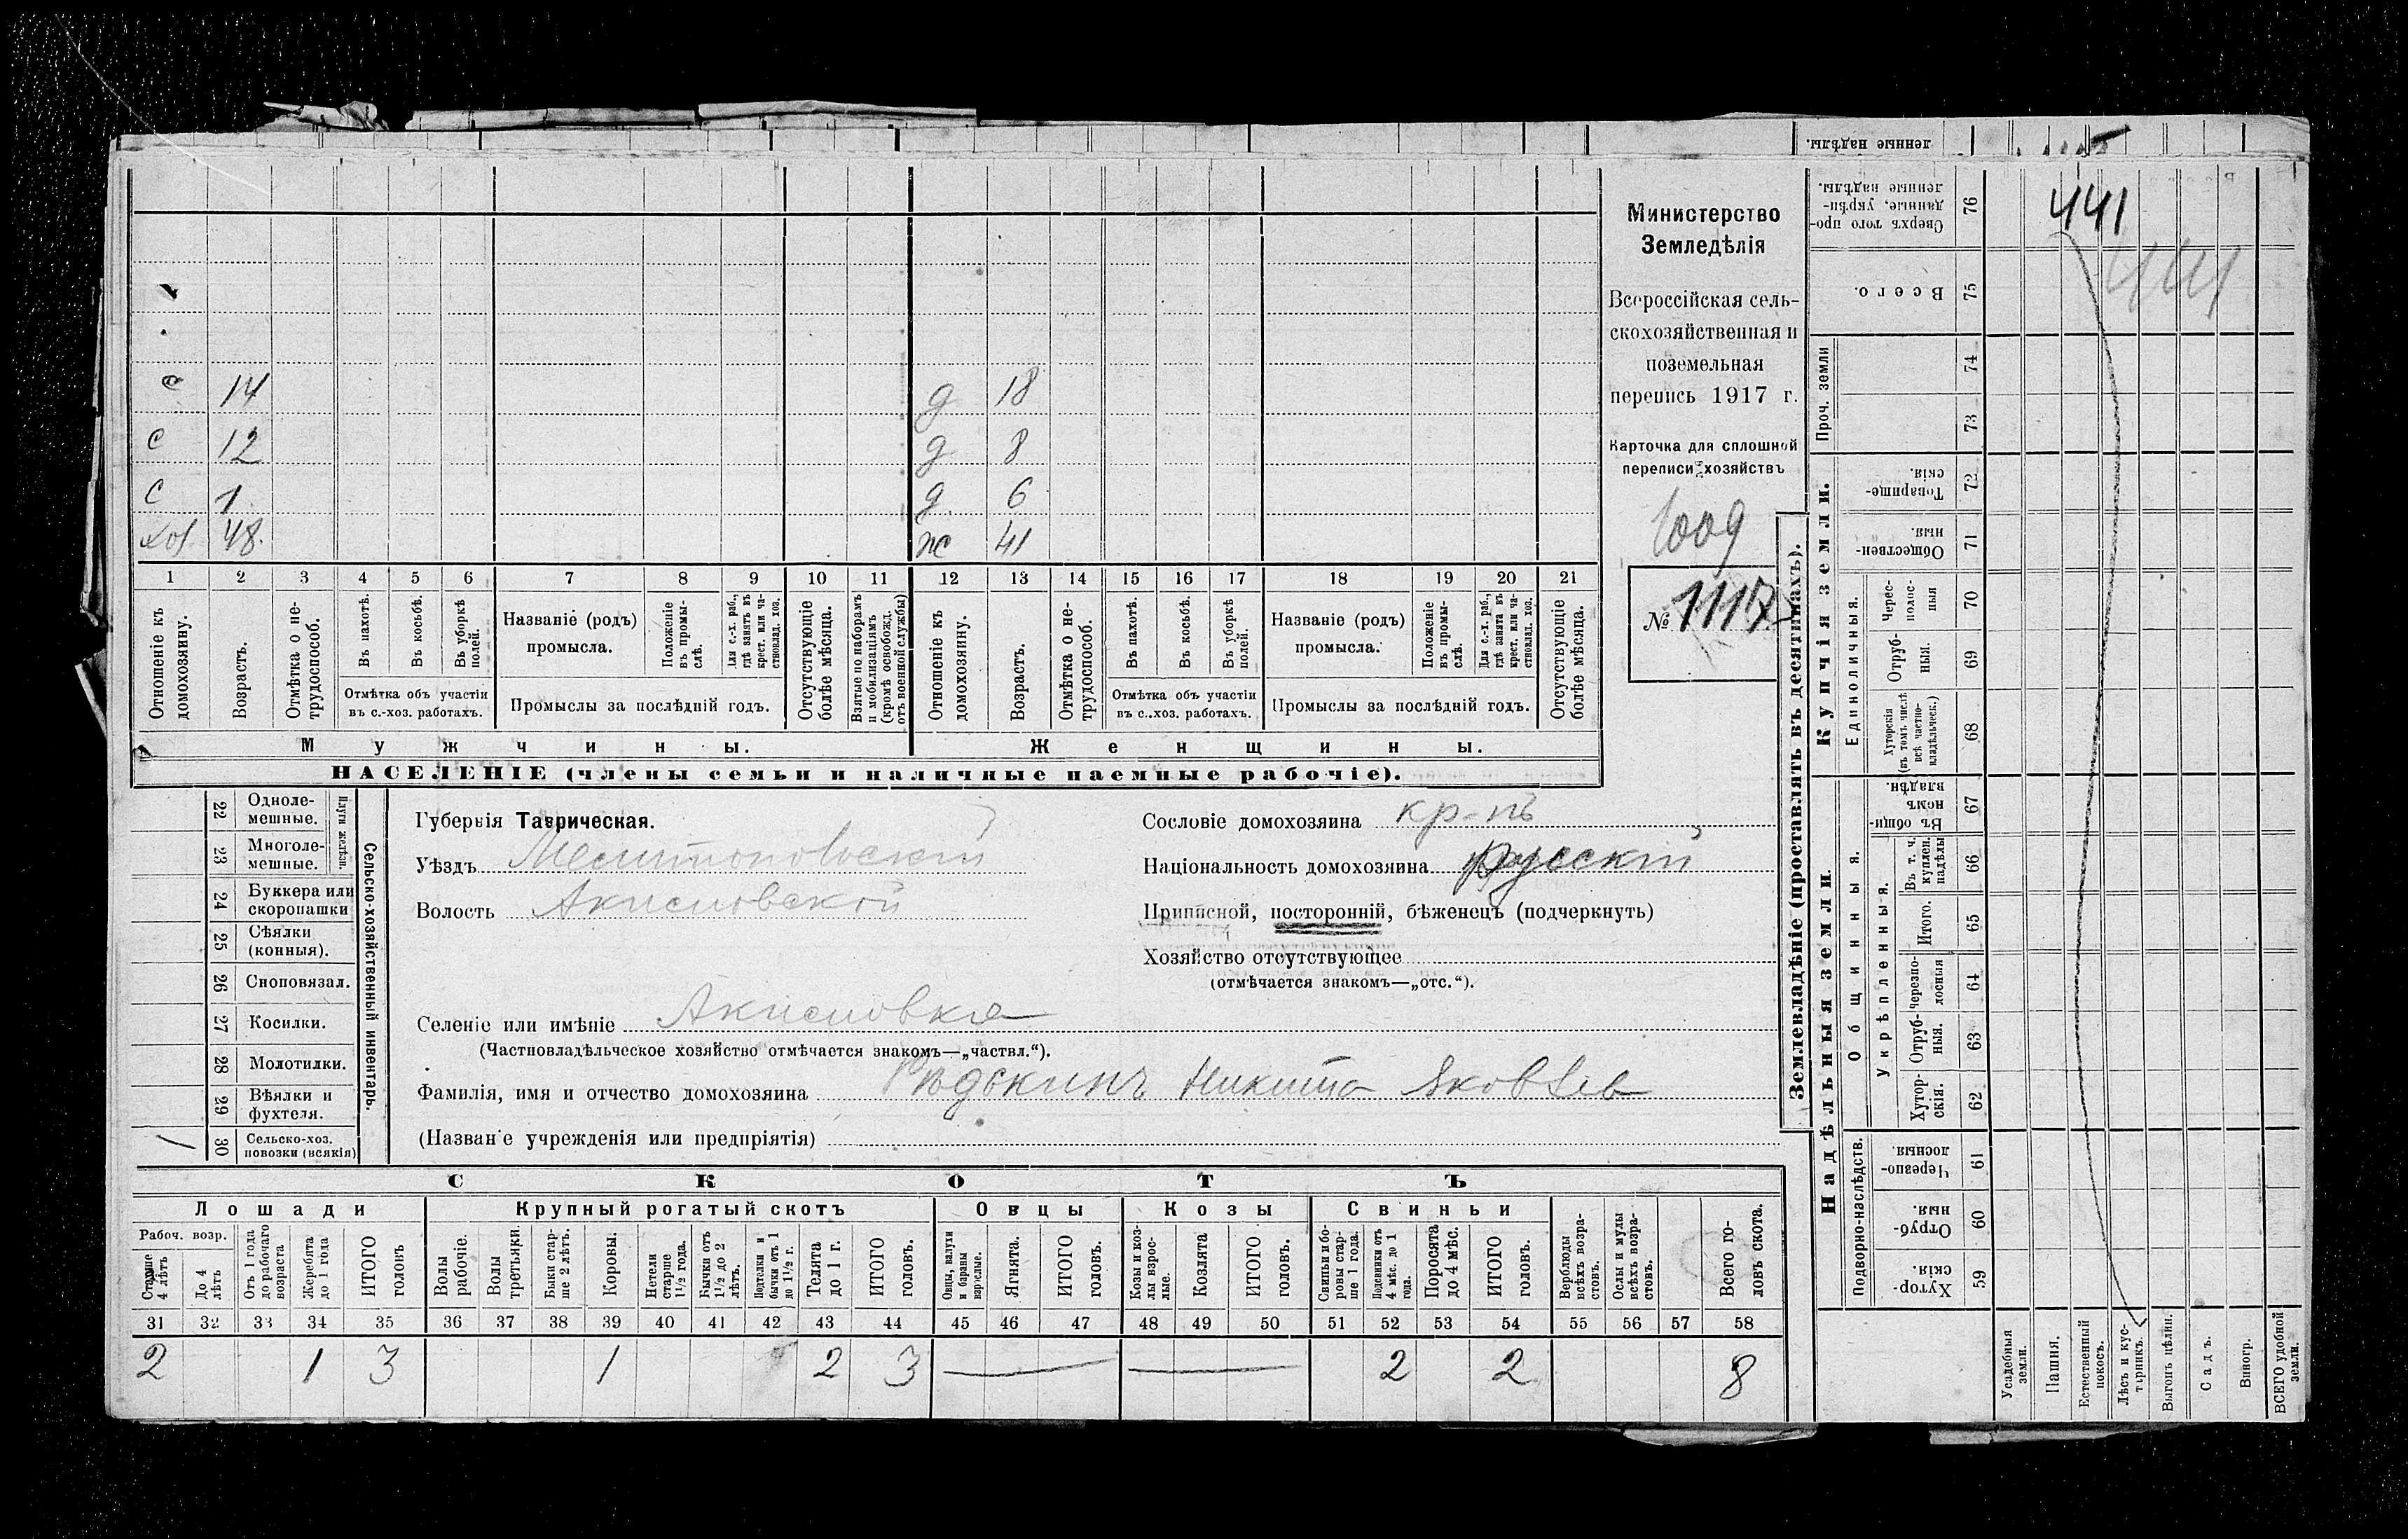 441
441
с 14 д 18
с 12 д 8
с 1 д 6
хоз 48. ж 41
1 2 3 4 5 6 7 8 9 10 11 12 13 14 15 16 17 18 19 20 21
Отношеніе къ домохозяину.
Возрастъ.
Отмѣтка о не-
трудоспособ.
Въ пахотѣ.
Въ косьбѣ.
Въ уборкѣ
полей.
Отмѣтка объ участіи
въ с.-хоз. работахъ.
Названіе (родъ)
промысла.
Положеніе
въ промы-
слѣ.
Для с.-х. раб.,
гдѣ занятъ въ
крест. или ча-
стновлад. хоз.
Промыслы за послѣдній годъ.
Отсутствующіе
болѣе мѣсяца.
Взятые по наборамъ
и мобилизаціямъ
(кромѣ освобожд.
отъ военной службы)
Отношеніе къ
домохозяину.
Возрастъ.
Отмѣтка о не-
трудоспособ.
Въ пахотѣ.
Въ косьбѣ.
Въ уборкѣ
полей.
Отмѣтка объ участіи
въ с.-хоз. работахъ.
Названіе (родъ)
промысла.
Положеніе
въ промы-
слѣ.
Для с.-х. раб.,
гдѣ занята въ
крест. или ча-
стновлад. хоз.
Промыслы за послѣдній годъ.
Отсутствующіе
болѣе мѣсяца.
Мужчины. Женщины.
НАСЕЛЕНІЕ (члены семьи и наличные наемные рабочіе).
Министерство
Земледѣлія
Всероссійская сель-
скохозяйственная и
поземельная
перепись 1917 г.
Карточка для сплошной
переписи хозяйствъ
1009
№ 1117
Сельско-хозяйственный инвентарь.
Плуги желѣзн.
22 Одноле-
мешные.
23 Многоле-
мешные.
24 Буккера или
скоропашки
25 Сѣялки
(конныя).
26 Сноповязал.
27 Косилки.
28 Молотилки.
29 Вѣялки и
фухтеля.
30 Сельско-хоз.
повозки (всякія)
Губернія Таврическая.
Уѣздъ Мелитопольскій
Волость Акимовской
Селеніе или имѣніе Акимовка
(Частновладѣльческое хозяйство отмѣчается знакомъ—„частвл.“).
Фамилія, имя и отчество домохозяина Рѣдькинъ Никита Яковлев
(Названіе учрежденія или предпріятія)
Сословіе домохозяина кр-нъ
Національность домохозяина русскій
Приписной, посторонній, бѣженецъ (подчеркнуть)
Хозяйство отсутствующее
(отмѣчается знакомъ—„отс.“).
СКОТЪ
Лошади Крупный рогатый скотъ Овцы Козы Свиньи
Рабоч. возр.
Старше
4 лѣтъ
До 4
лѣтъ
Отъ 1 года
до рабочаго
возраста
Жеребята
до 1 года
ИТОГО
головъ
Волы
рабочіе.
Волы
третьяки.
Быки стар-
ше 2 лѣтъ.
Коровы.
Нетели
старше
1½ года.
Бычки отъ
1½ до 2
лѣтъ.
Подтелки и
бычки отъ 1
до 1½ г.
Телята
до 1 г.
ИТОГО
головъ.
Овцы, валухи
и бараны
взрослые.
Ягнята.
ИТОГО
головъ.
Козы и коз-
лы взрос-
лые.
Козлята
ИТОГО
головъ.
Свиньи и бо-
ровы стар-
ше 1 года.
Подсвинки отъ
4 мѣс. до 1
года.
Поросята
до 4 мѣс.
ИТОГО
головъ.
Верблюды
всѣхъ возра-
стовъ.
Ослы и мулы
всѣхъ возра-
стовъ.
Всего го-
ловъ скота.
31 32 33 34 35 36 37 38 39 40 41 42 43 44 45 46 47 48 49 50 51 52 53 54 55 56 57 58
2 1 3 1 2 3 — — 2 2 8
Землевладѣніе (проставлять въ десятинахъ).
Купчія земли.
денные надѣлы.
Сверхъ того про-
данные, укрѣп-
ленные надѣлы. 76
Всего. 75
Проч. земли
74
73
Товарище-
скія. 72
Обществен-
ныя. 71
Единоличныя.
Черес-
полос-
ныя 70
Отруб-
ныя. 69
Хуторскія
(въ томъ числѣ
всѣ частно-
владѣльческ.) 68
Надѣльныя земли.
Общинныя.
Въ общин-
номъ
владѣн. 67
Укрѣпленныя.
Въ т. ч.
куплен.
надѣлы 66
Итого. 65
Черезпо-
лосныя 64
Отруб-
ныя. 63
Хутор-
скія. 62
Подворно-наслѣдств.
Черезпо-
лосныя. 61
Отруб-
ныя. 60
Хутор-
скія. 59
Усадебныя
земли.
Пашня.
Естественный
покосъ.
Лѣсъ и кус-
тарникъ.
Выгонъ цѣлин.
Садъ.
Виногр.
ВСЕГО удобной
земли.